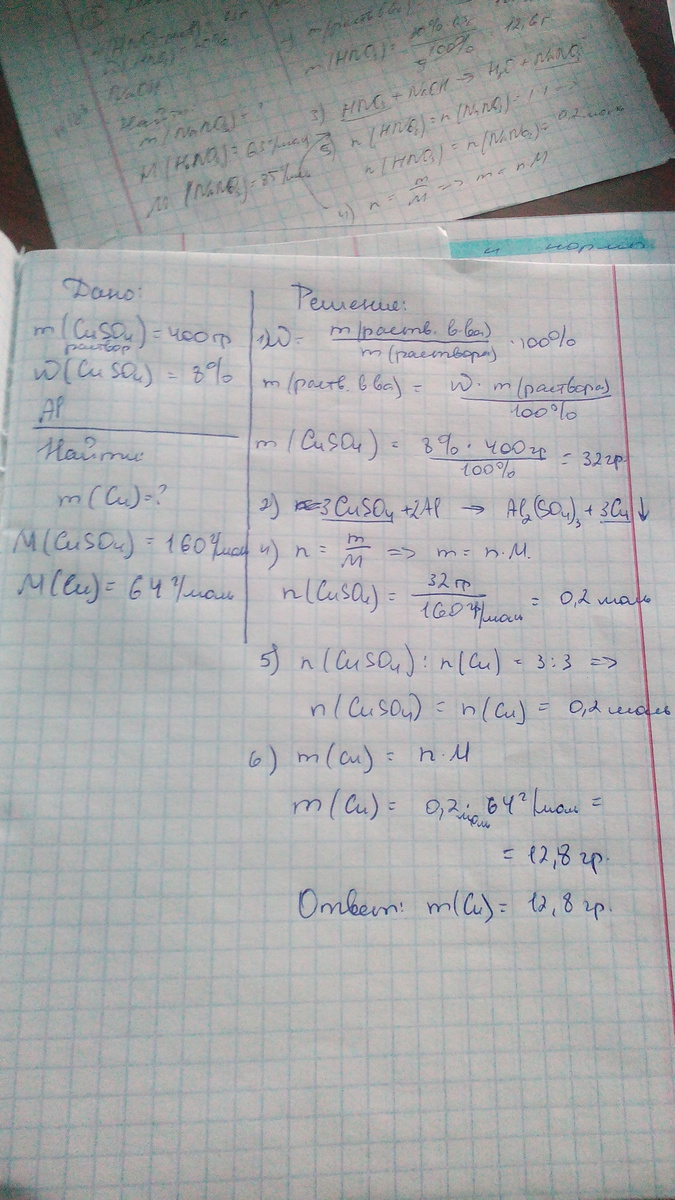 m(HNO3) =
100%
12,6 г
NaOH
Найти:
m(NaNO3) = ?
3) HNO3 + NaOH → H2O + NaNO3
M(HNO3) = 63 г/моль
n(HNO3) = n(NaNO3) = 1:1 =>
M(NaNO3) = 85 г/моль
n(HNO3) = n(NaNO3) = 0,2 моль
4) n = m/M => m = nM
и норми
Дано:
m(CuSO4) = 400 гр
раствор
W(CuSO4) = 8%
Al
Найти:
m(Cu) = ?
M(CuSO4) = 160 г/моль
M(Cu) = 64 г/моль
Решение:
1) W = m(раств. в-ва) / m(раствора) · 100%
m(раств. в ва) = W · m(раствора) / 100%
m(CuSO4) = 8% · 400 гр / 100% = 32 гр
2) 3CuSO4 + 2Al → Al2(SO4)3 + 3Cu ↓
4) n = m/M => m = n·M.
n(CuSO4) = 32 гр / 160 г/моль = 0,2 моль
5) n(CuSO4) : n(Cu) = 3:3 =>
n(CuSO4) = n(Cu) = 0,2 моль
6) m(Cu) = n·M
m(Cu) = 0,2 моль · 64 г/моль =
= 12,8 гр.
Ответ: m(Cu) = 12,8 гр.